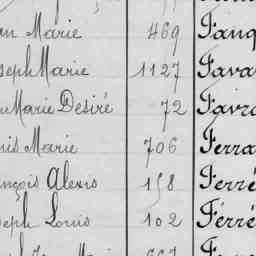 an Marie 469 Fanq
seph Marie 1127 Fava
Marie Désiré 72 Favr
is Marie 706 Ferra
nçois Alexis 158 Ferré
seph Louis 102 Ferré